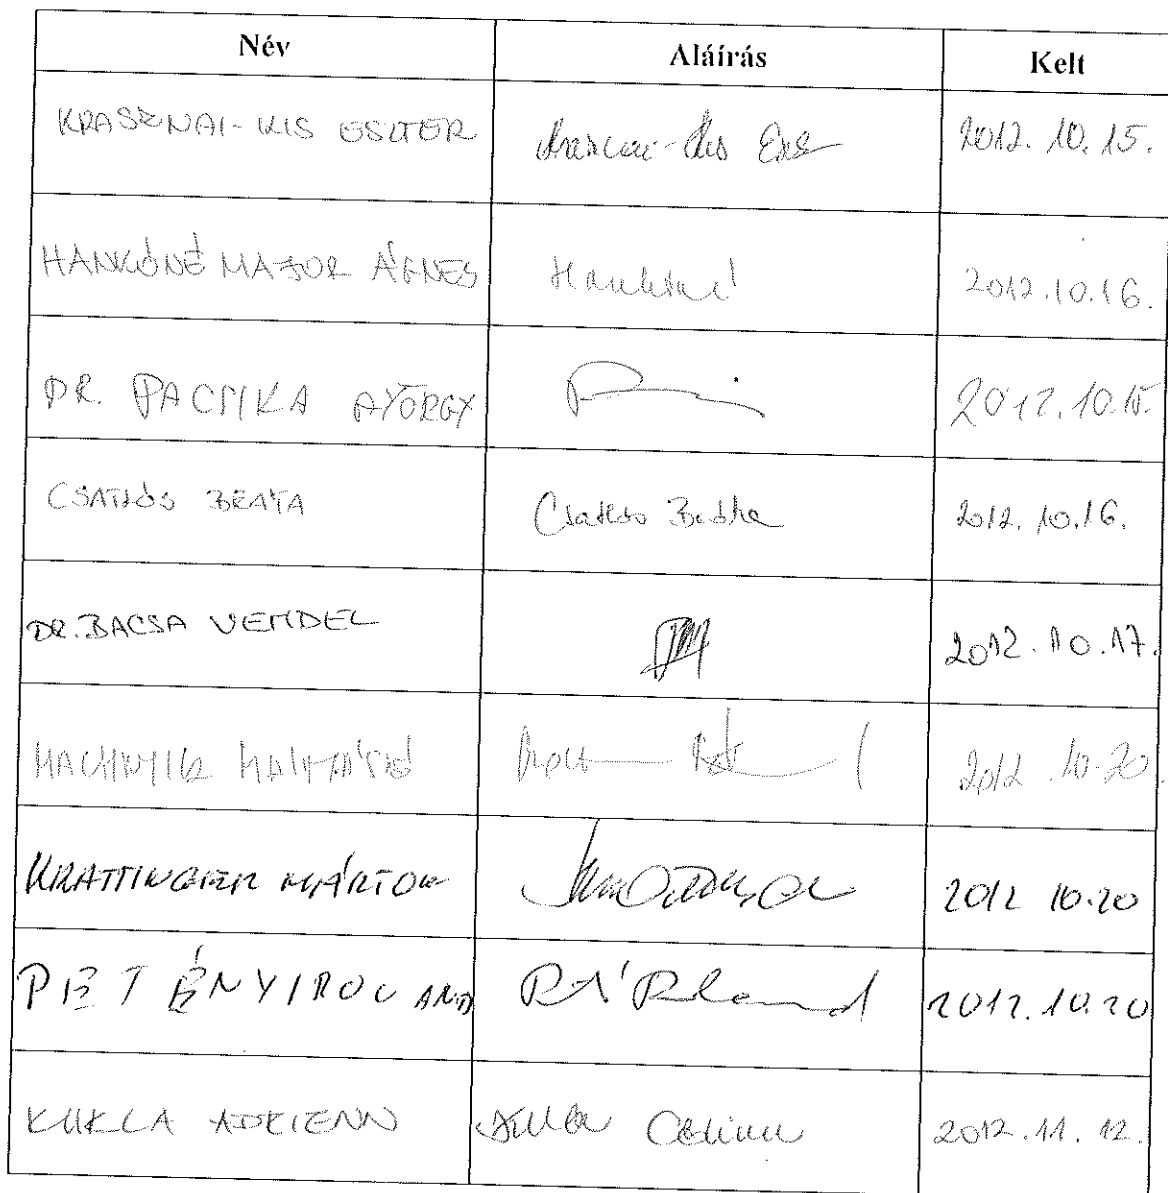 Név Aláírás Kelt
KRASZNAI-KIS ESZTER Krasznai-Kis Esz 2012. 10. 15.
HANKÓNÉ MAJOR ÁGNES Hankóné 2012.10.16.
DR. PACSIKA GYÖRGY 2012.10.15.
CSATLÓS BEÁTA Csatlós Beáta 2012. 10.16.
DR. BACSA VENDEL 2012. 10. 17.
2012 10.20.
KRATTINGER MÁRTON 2012 10.20
PETÉNYI ROLAND 2012.10.20
KUKLA ADRIENN Kukla Adrienn 2012.11.12.